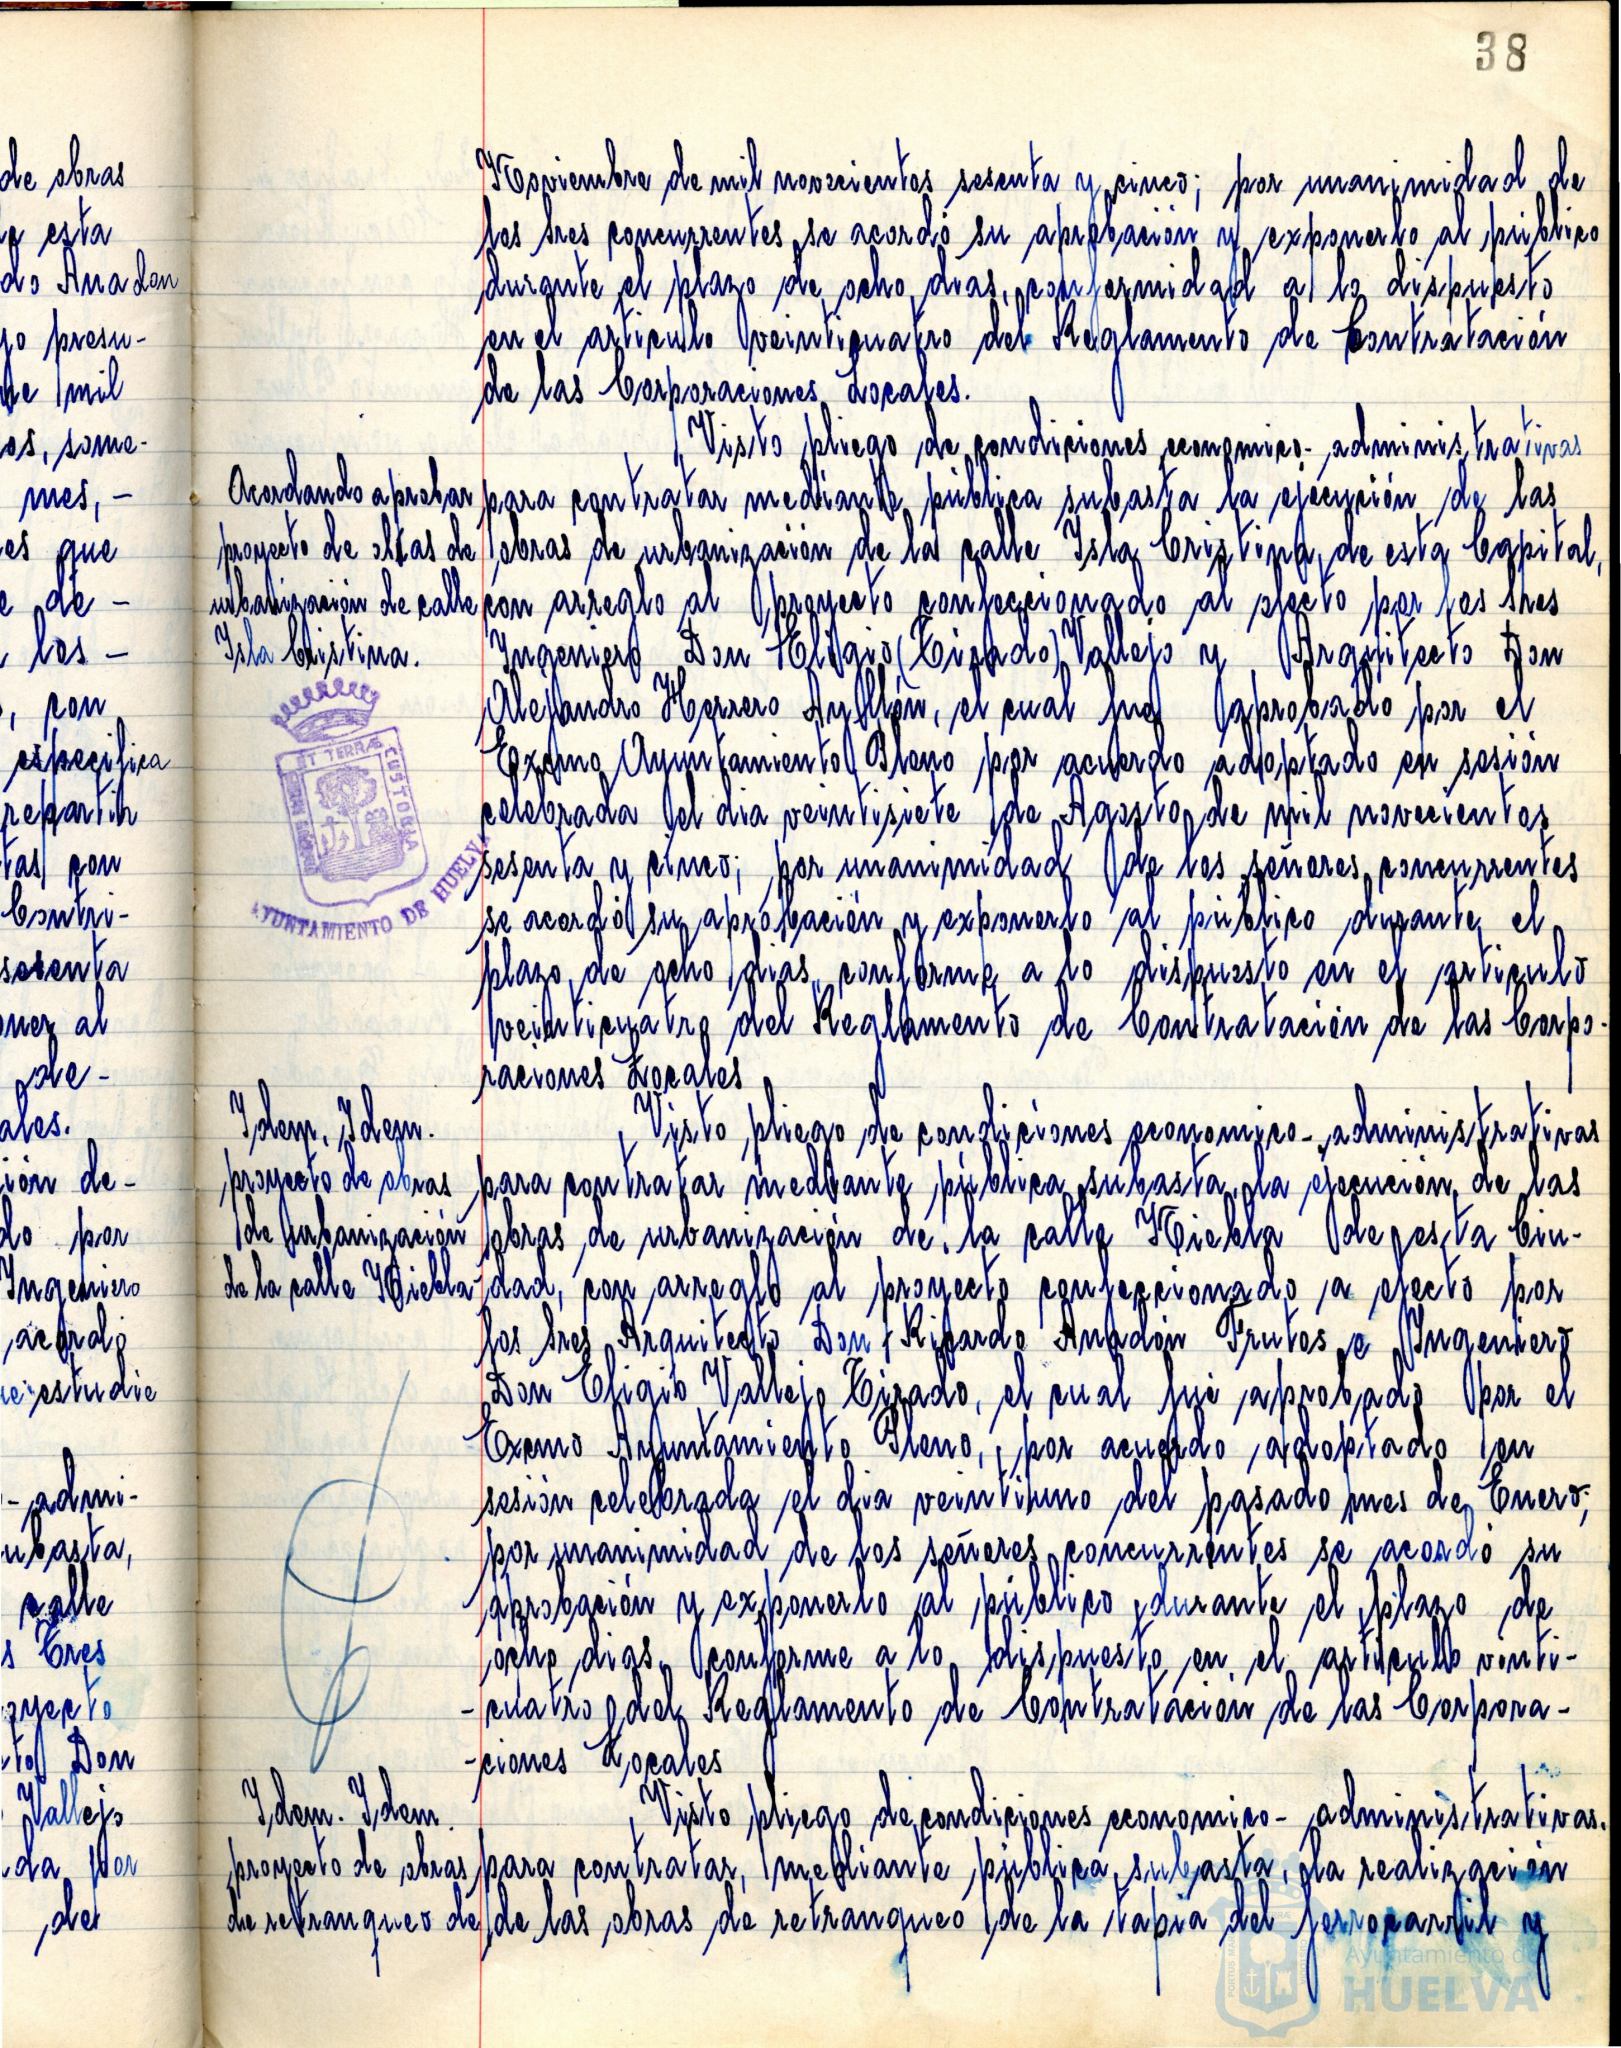 38
de obras
esta
do Anadon
go presu-
de mil
os, some-
mes, -
es que
e de -
los -
, con
especifica
repartir
tas con
Contri-
sesenta
oner al
de -
ales.
ión de-
do por
Ingeniero
acordó
estudie
- admi-
ubasta,
calle
s Tres
oyecto
to Don
Vallejo
da por
del
Noviembre de mil novecientos sesenta y cinco; por unanimidad de
los Sres concurrentes se acordó su aprobación y exponerlo al público
durante el plazo de ocho dias, conformidad a lo dispuesto
en el articulo veinticuatro del Reglamento de Contratación
de las Corporaciones Locales.
Visto pliego de condiciones economico- administrativas
Acordando aprobar
proyecto de obras de
urbanización de calle
Isla Cristina.
para contratar mediante pública subasta la ejecución de las
obras de urbanización de la calle Isla Cristina, de esta Capital,
con arreglo al proyecto confeccionado al efecto por los Sres
Ingeniero Don Eligio (Tirado) Vallejo y Arquitecto Don
Alejandro Herrero Ayllón, el cual fué aprobado por el
Excmo Ayuntamiento Pleno por acuerdo adoptado en sesión
celebrada el dia veintisiete de Agosto de mil novecientos
sesenta y cinco; por unanimidad de los señores concurrentes
se acordó su aprobación y exponerlo al público durante el
plazo de ocho dias, conforme a lo dispuesto en el articulo
veinticuatro del Reglamento de Contratación de las Corpo-
raciones Locales
ET TERRAE CUSTODIA
AYUNTAMIENTO DE HUELVA
Idem. Idem.
proyecto de obras
de urbanización
de la calle Niebla
Visto pliego de condiciones economico- administrativas
para contratar mediante pública subasta la ejecución de las
obras de urbanización de la calle Niebla de esta Ciu-
dad, con arreglo al proyecto confeccionado a efecto por
los Sres Arquitecto Don Ricardo Anadón Frutos e Ingeniero
Don Eligio Vallejo Tirado, el cual fué aprobado por el
Excmo Ayuntamiento Pleno, por acuerdo adoptado en
sesión celebrada el dia veintiuno del pasado mes de Enero;
por unanimidad de los señores concurrentes se acordó su
aprobación y exponerlo al público durante el plazo de
ocho dias conforme a lo dispuesto en el articulo vinti-
-cuatro del Reglamento de Contratación de las Corpora-
-ciones Locales
Idem. Idem.
proyecto de obras
de retranqueo de
Visto pliego de condiciones economico- administrativas.
para contratar, mediante pública subasta, la realización
de las obras de retranqueo de la tapia del ferrocarril y
Ayuntamiento de
HUELVA